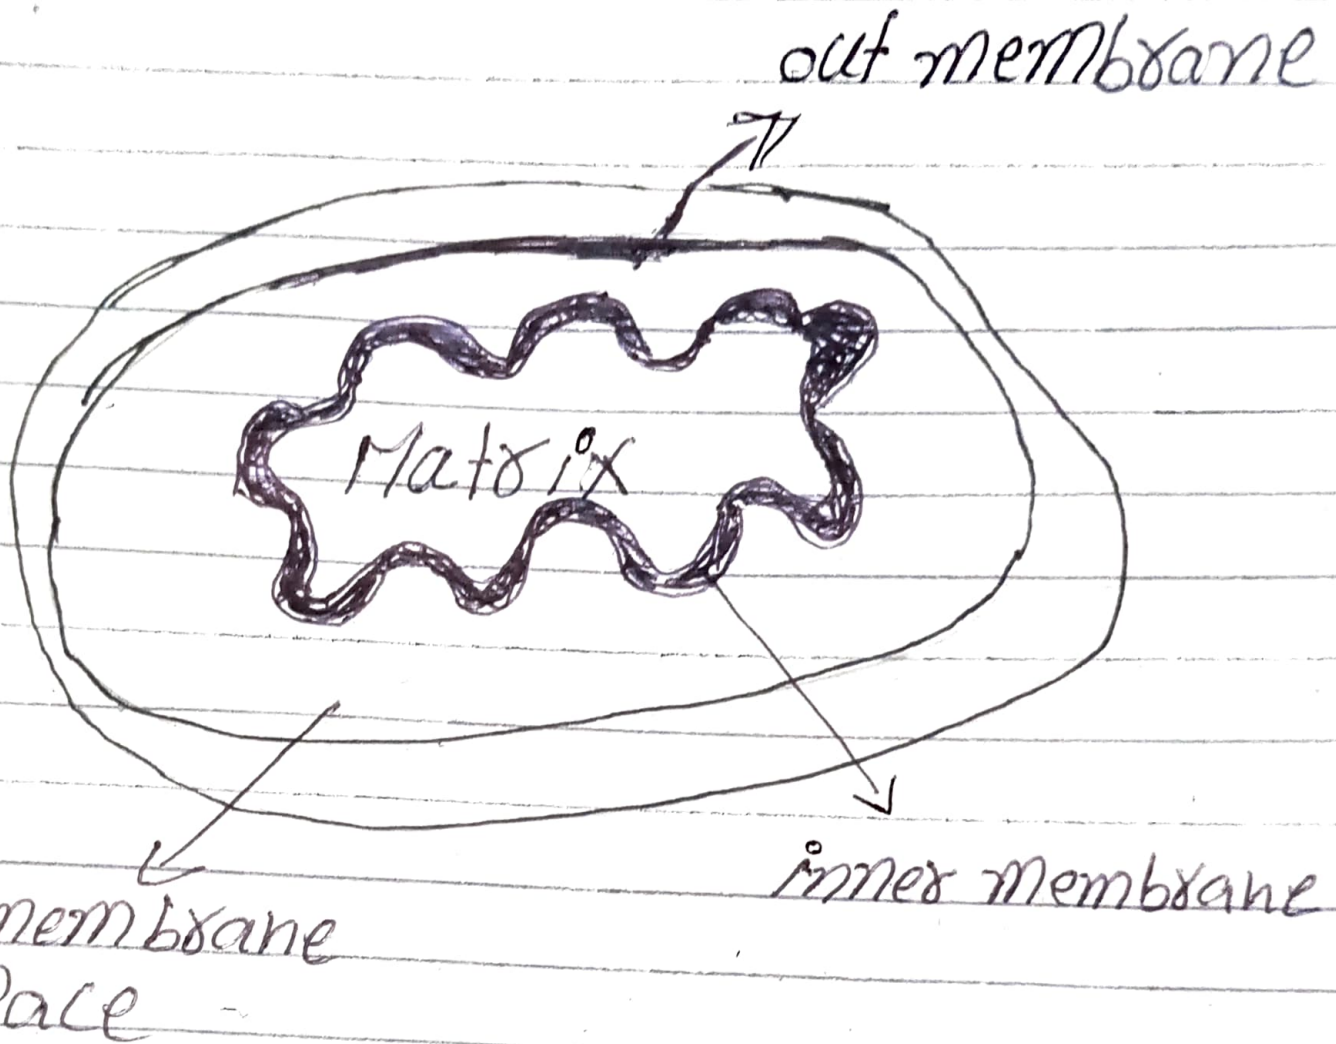 out membrane
Matrix
inner membrane
membrane